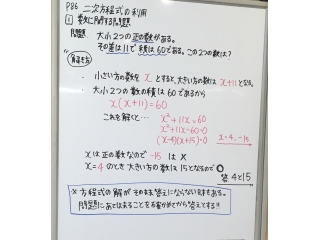 P86 二次方程式の利用
① 数に関する問題
問題 大小2つの正の数がある。
その差は11で積は60である。この2つの数は?
解き方
・小さい方の数をxとすると、大きい方の数はx+11となる。
・大小2つの数の積は60であるから
x(x+11)=60
これを解くと… x²+11x=60
x²+11x-60=0
(x-4)(x+15)=0 x=4,-15
xは正の数なので -15 は ×
x=4のとき 大きい方の数は15となるので ○
答. 4と15
※ 方程式の解がそのまま答えにならない時もある。
問題にあてはまることを確かめてから答えとする!!